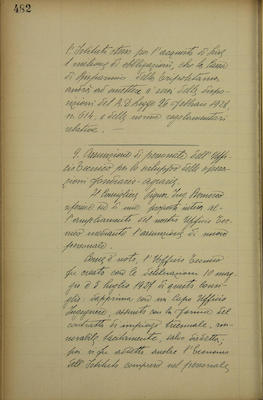 482
l'Istituto stesso per l'acquisto di Lire
1 milione di obbligazioni, che la Cassa
di Risparmio della Tripolitania
andrà ad emettere a sensi delle dispo-
sizioni del R.D. Legge 26 febbraio 1928,
n. 614, e delle norme regolamentari
relative. —
9. Assunzione di personale dell'Uffi-
cio Tecnico per lo sviluppo delle opera-
zioni fondiario-agrarie.
Il Consigliere Signor Ing.
riferisce su di una proposta intesa al-
l'ampliamento del nostro Ufficio Tec-
nico mediante l'assunzione di nuovo
personale.
Come è noto, l'Ufficio Tecnico
fu creato con le deliberazioni 10 mag-
gio e 5 luglio 1927 di questo Consi-
glio, dapprima con un Capo Ufficio
Ingegnere, assunto con la forma del
contratto di impiego triennale, rin-
novabile tacitamente, salvo disdetta;
poi vi fu addetto anche l'Economo
dell'Istituto compreso nel personale